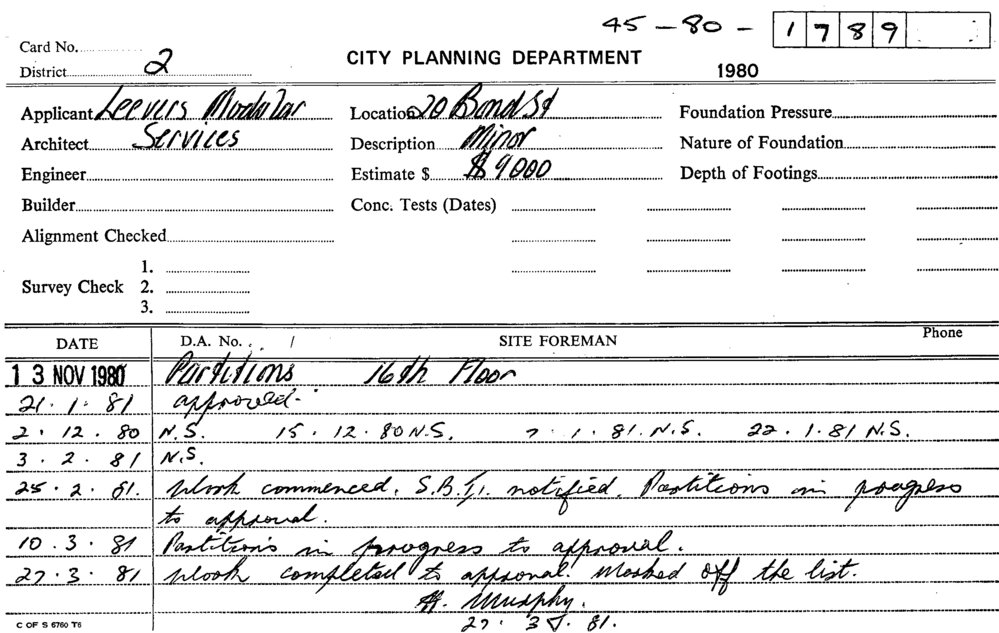 45-80- 1789
Card No.
District 2
CITY PLANNING DEPARTMENT
1980
Applicant Leevers Modular Location 20 Bond St Foundation Pressure
Architect Services Description Minor Nature of Foundation
Engineer Estimate $ $9000 Depth of Footings
Builder Conc. Tests (Dates)
Alignment Checked
1.
Survey Check 2.
3.
DATE D.A. No. / SITE FOREMAN Phone
13 NOV 1980 Partitions 16th Floor
21.1.81 approved.
2.12.80 N.S. 15.12.80 N.S. 7.1.81. N.S. 22.1.81 N.S.
3.2.81 N.S.
25.2.81. Work commenced. notified. Partitions in progress
to approval.
10.3.81 Partitions in progress to approval.
27.3.81 Work completed to approval. Marked off the list.
Murphy.
27.3.81.
C OF S 6760 T6